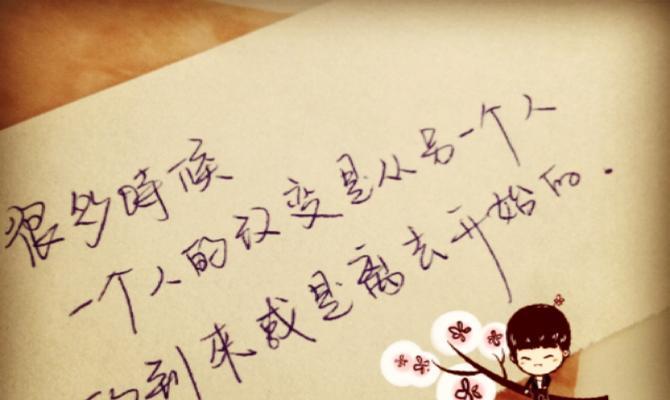 很多時候
一个人的改变是从另一个人
的到来或是离去开始的.